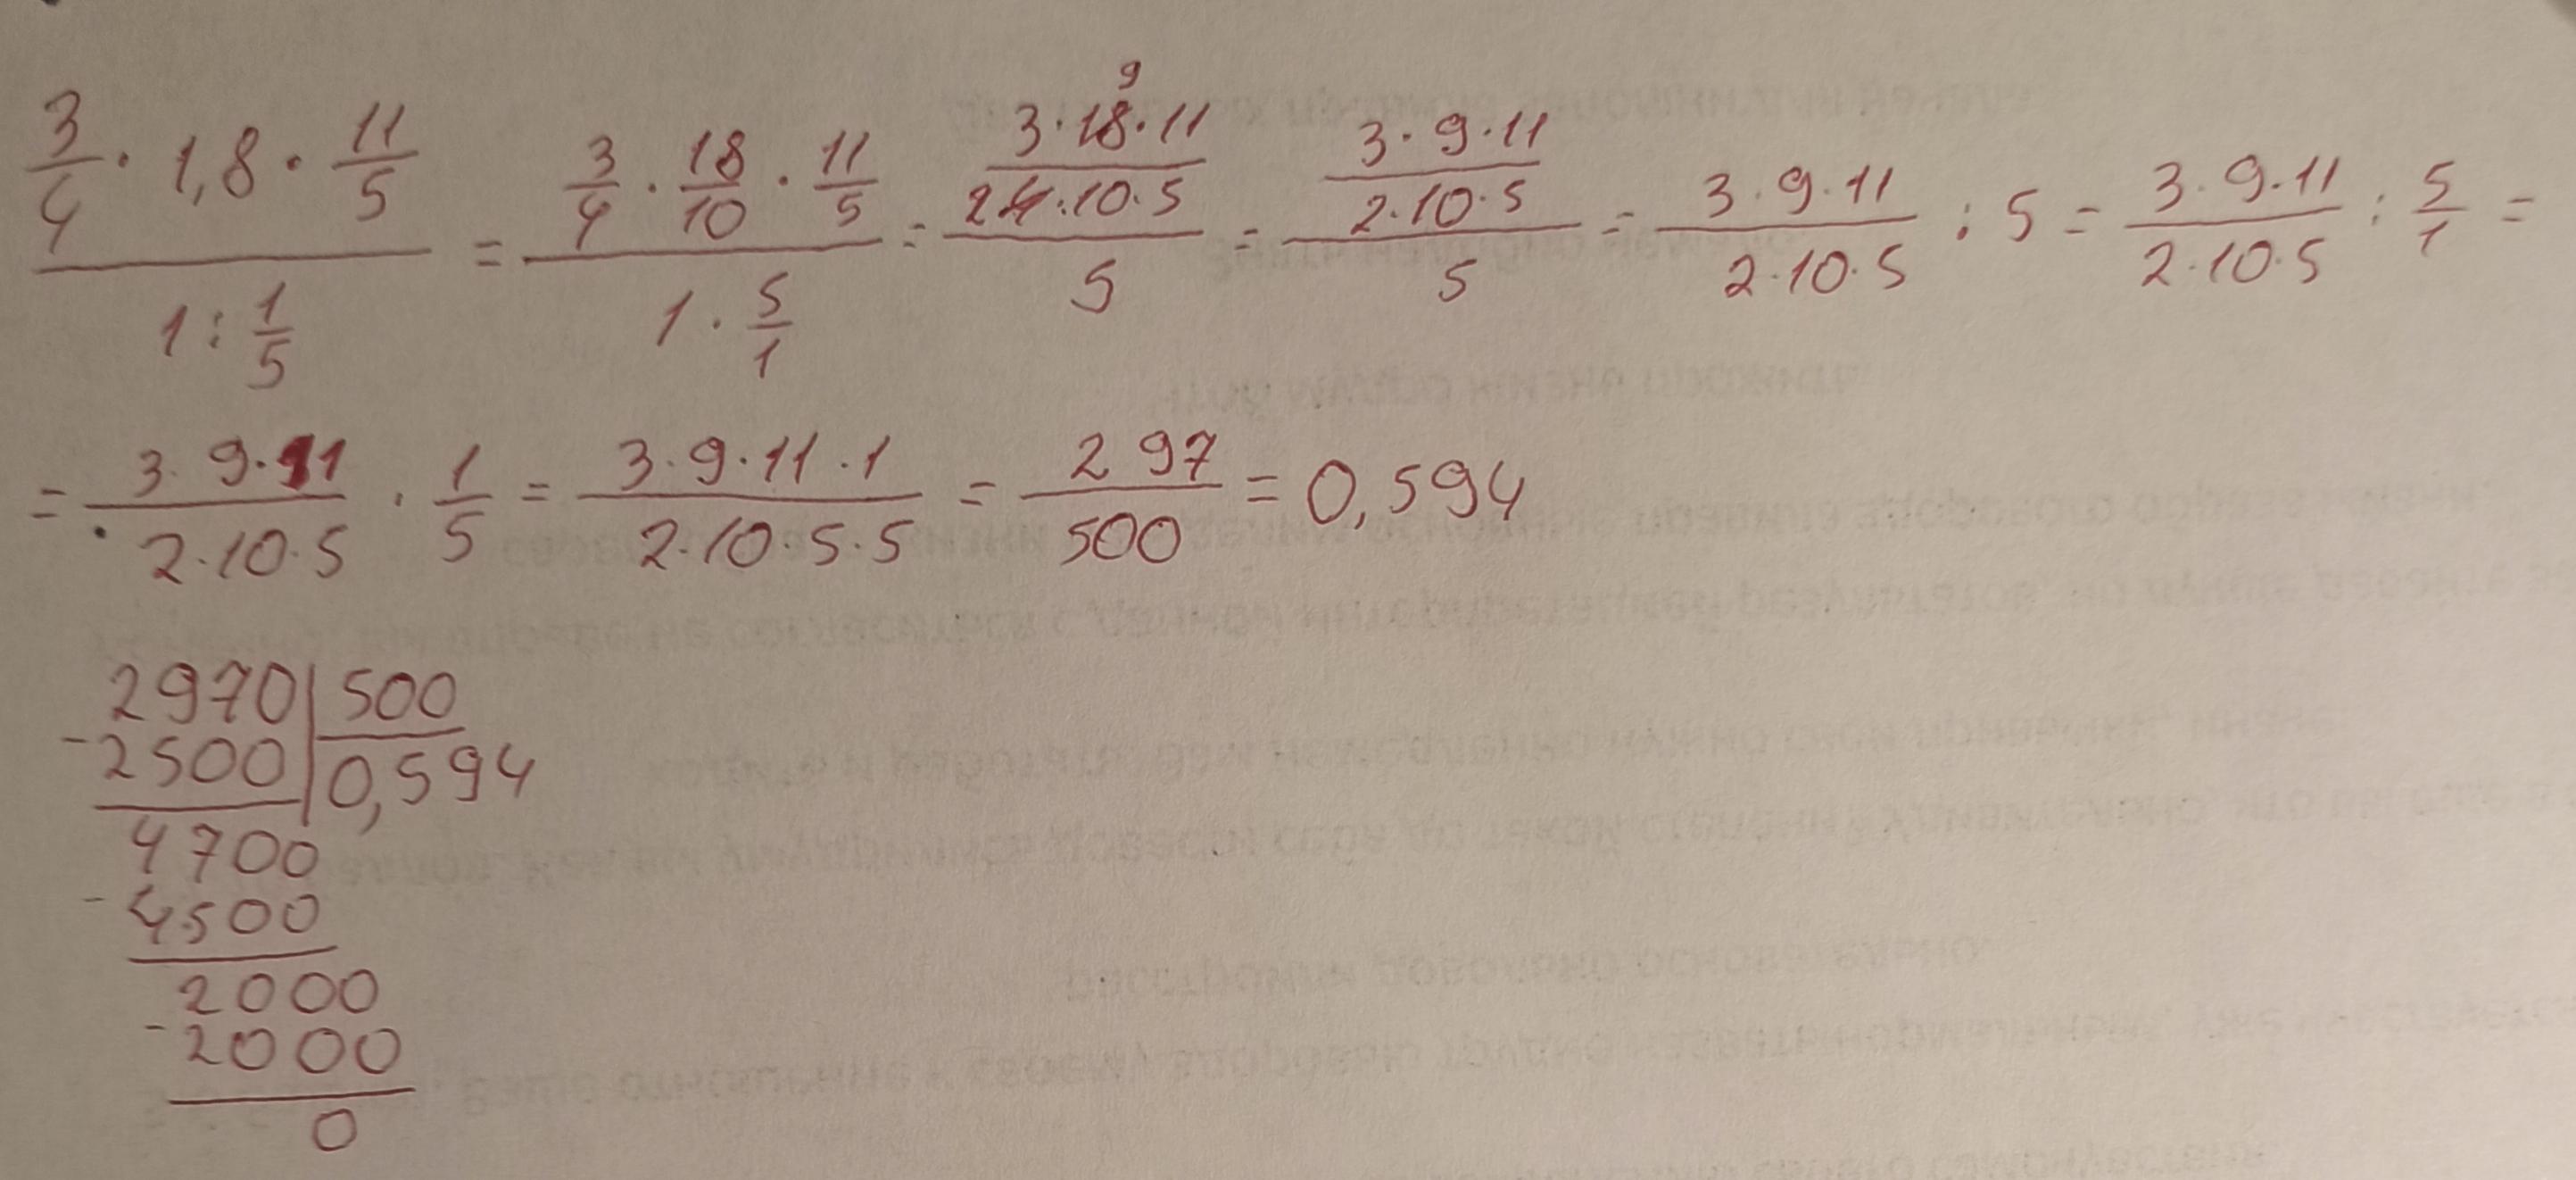 3/4 · 1,8 · 11/5 / 1 : 1/5 = 3/4 · 18/10 · 11/5 / 1 · 5/1 = 3 · 18 9 · 11 / 2 4 · 10 · 5 / 5 = 3 · 9 · 11 / 2 · 10 · 5 / 5 = 3 · 9 · 11 / 2 · 10 · 5 : 5 = 3 · 9 · 11 / 2 · 10 · 5 : 5/1 =
= 3 · 9 · 11 / 2 · 10 · 5 · 1/5 = 3 · 9 · 11 · 1 / 2 · 10 · 5 · 5 = 297/500 = 0,594
2970 | 500
- 2500 | 0,594
4700
- 4500
2000
- 2000
0